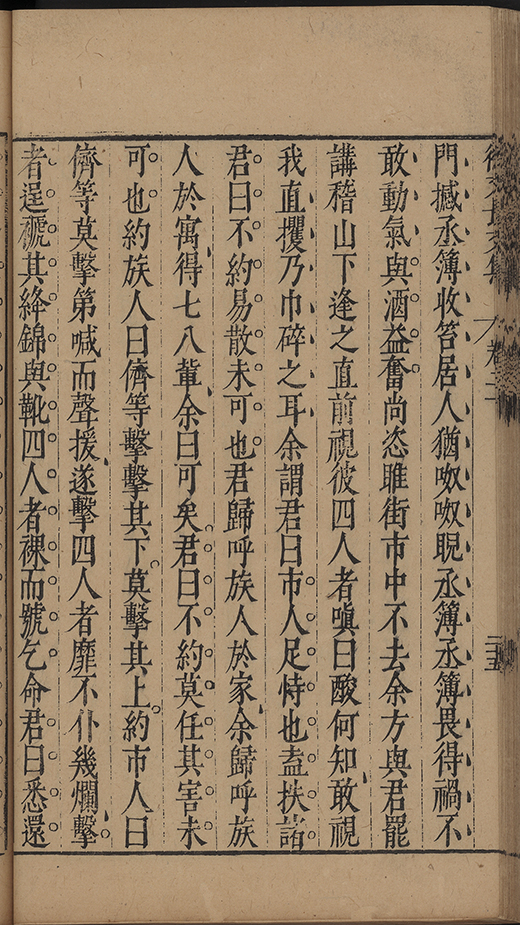 徐文長文集 卷二 三五
門撼丞簿收笞居人猶呶呶睨丞簿丞簿畏得禍不
敢動氣與酒益奮尚恣睢街市中不去余方與君罷
講稽山下逢之直前視彼四人者嗔曰酸何知敢視
我直攫乃巾碎之耳余謂君曰市人足恃也盍挾諸
君曰不約易散未可也君歸呼族人於家余歸呼族
人於寓得七八輩余曰可矣君曰不約莫任其害未
可也約族人曰儕等擊擊其下莫擊其上約市人曰
儕等莫擊第喊而聲援遂擊四人者靡不仆幾爛擊
者逞褫其絳錦與靴四人者裸而號乞命君曰悉還